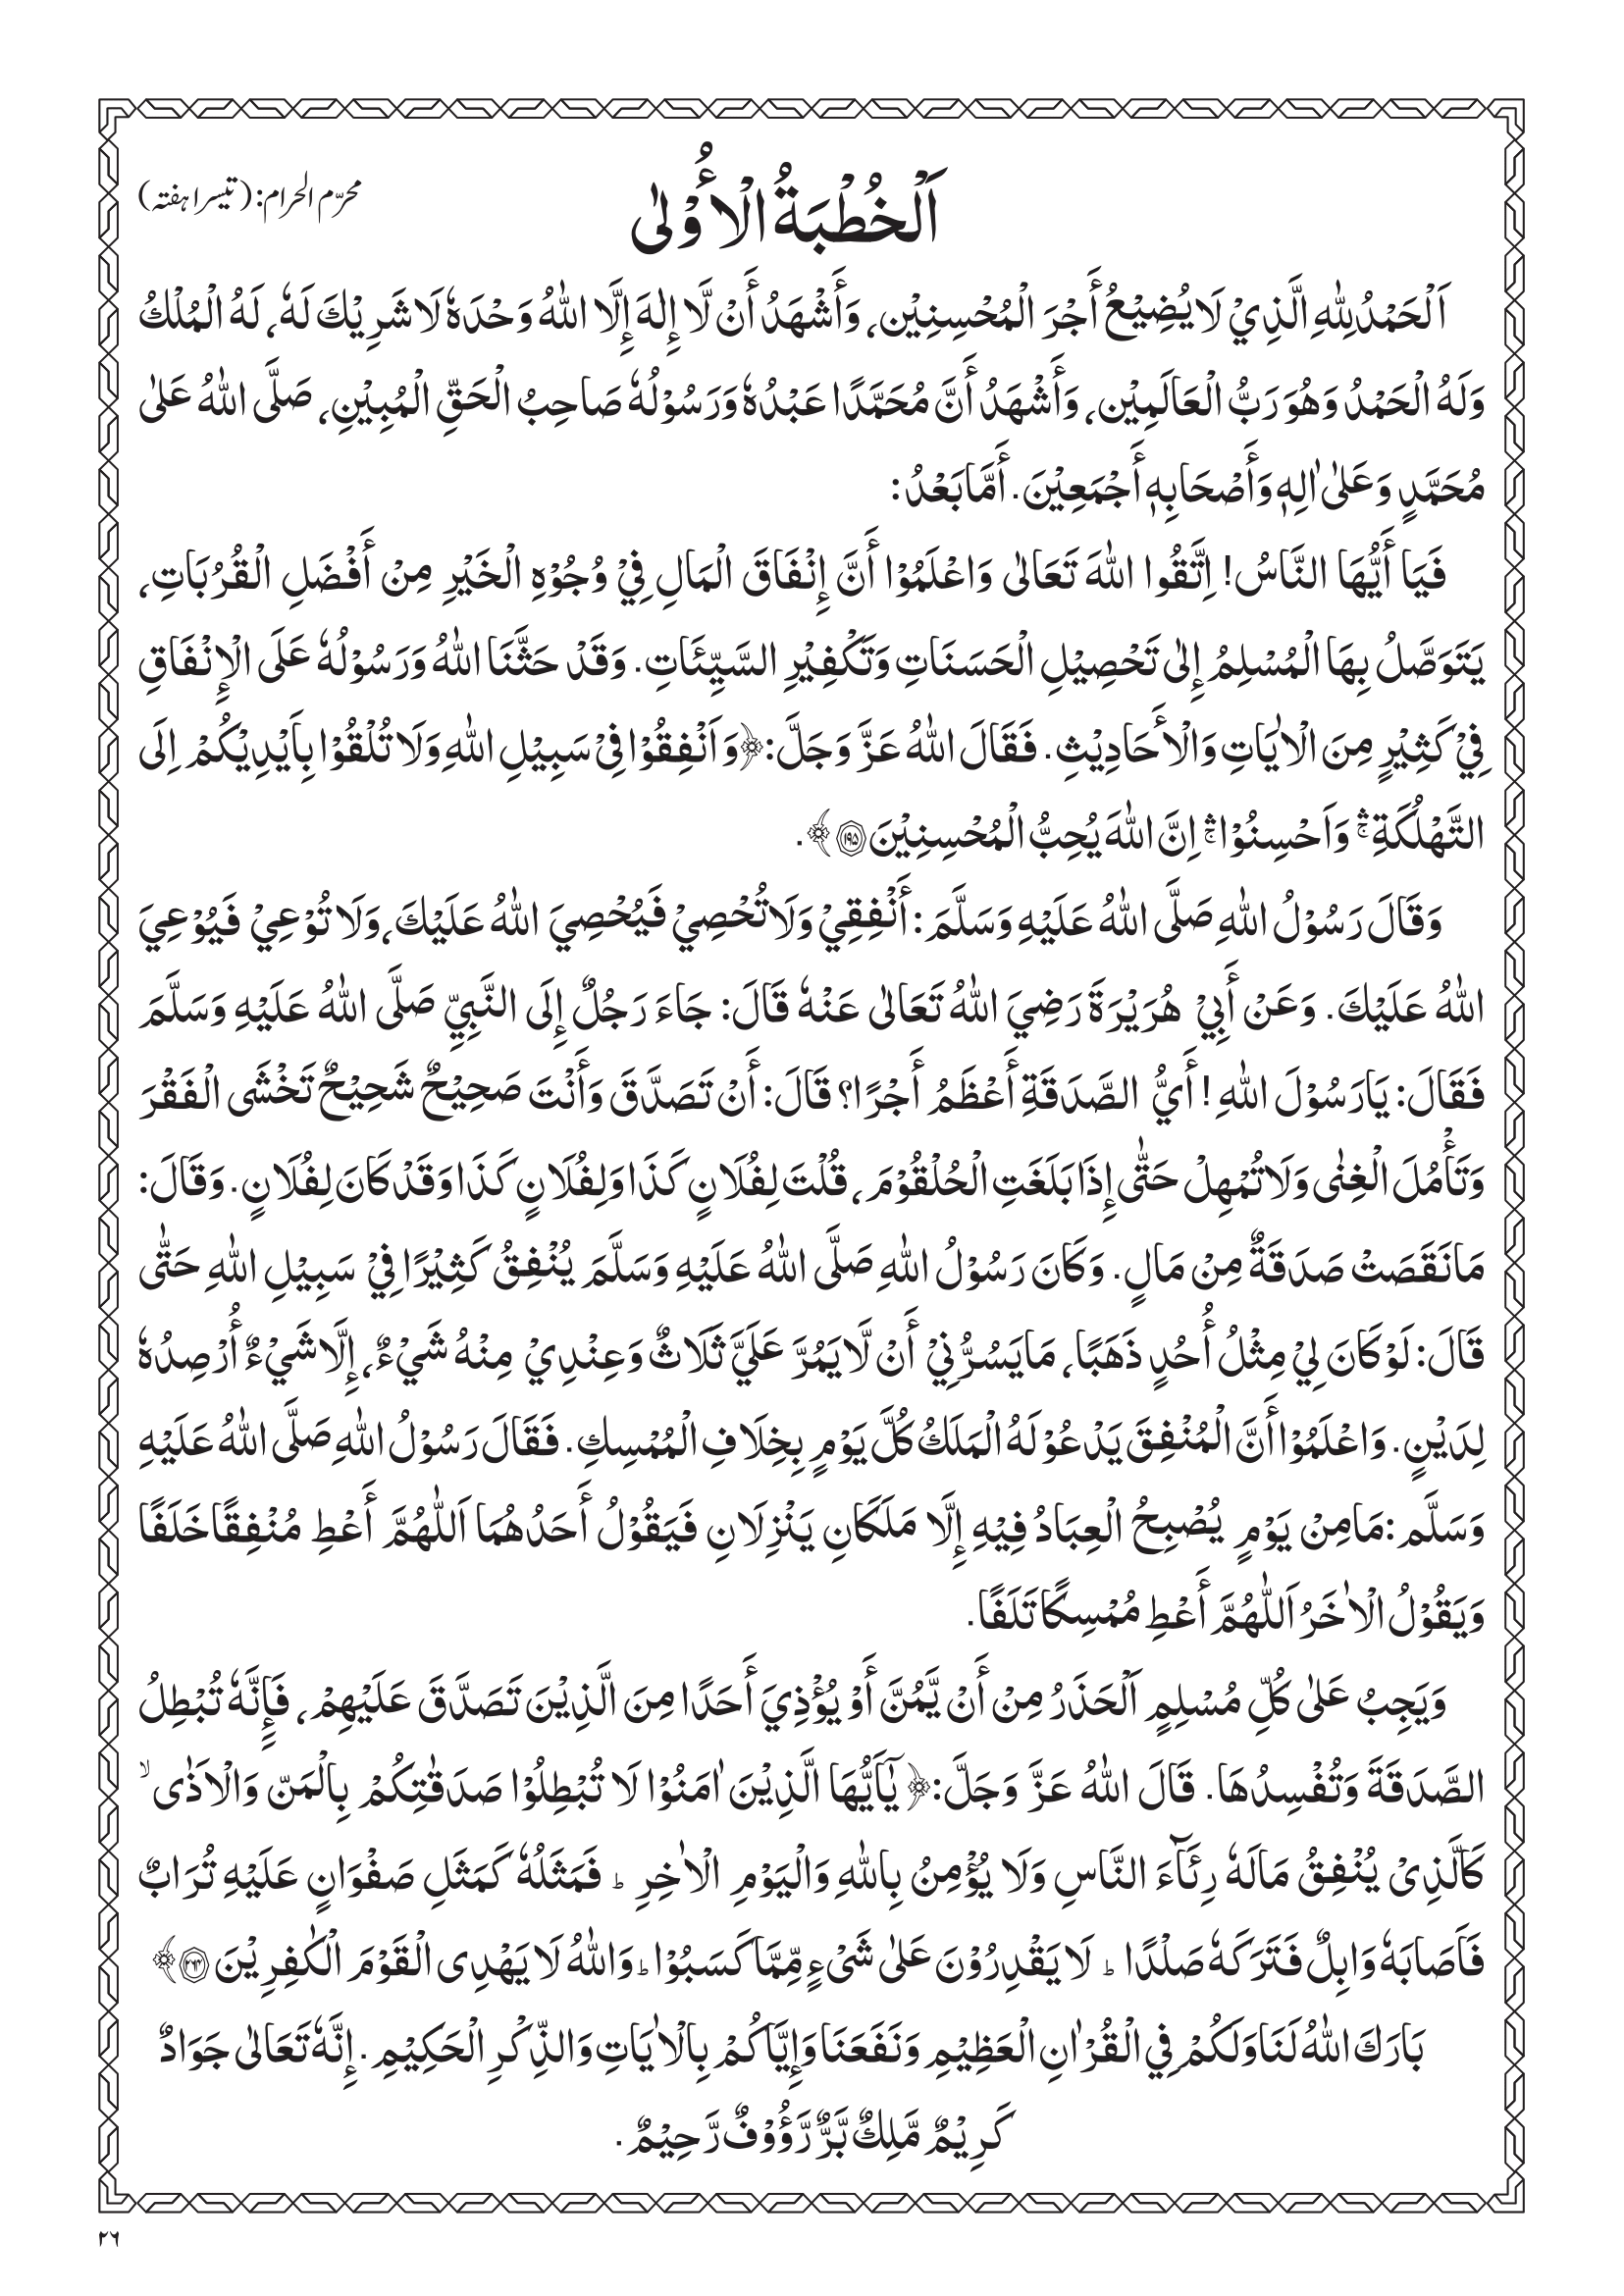 اَلْخُطْبَةُ الْأُوْلٰى
محرّم الحرام: (تیسرا ہفتہ)
اَلْحَمْدُ لِلّٰهِ الَّذِيْ لَا يُضِيْعُ أَجْرَ الْمُحْسِنِيْن، وَأَشْهَدُ أَنْ لَّا إِلٰهَ إِلَّا اللّٰهُ وَحْدَهٗ لَا شَرِيْكَ لَهٗ، لَهُ الْمُلْكُ
وَلَهُ الْحَمْدُ وَهُوَ رَبُّ الْعَالَمِيْن، وَأَشْهَدُ أَنَّ مُحَمَّدًا عَبْدُهٗ وَرَسُوْلُهٗ صَاحِبُ الْحَقِّ الْمُبِيْنِ، صَلَّى اللّٰهُ عَلٰى
مُحَمَّدٍ وَعَلٰى اٰلِهٖ وَأَصْحَابِهٖ أَجْمَعِيْنَ. أَمَّا بَعْدُ:
فَيَا أَيُّهَا النَّاسُ! اِتَّقُوا اللّٰهَ تَعَالٰى وَاعْلَمُوْا أَنَّ إِنْفَاقَ الْمَالِ فِيْ وُجُوْهِ الْخَيْرِ مِنْ أَفْضَلِ الْقُرُبَاتِ،
يَتَوَصَّلُ بِهَا الْمُسْلِمُ إِلٰى تَحْصِيْلِ الْحَسَنَاتِ وَتَكْفِيْرِ السَّيِّئَاتِ. وَقَدْ حَثَّنَا اللّٰهُ وَرَسُوْلُهٗ عَلَى الْإِنْفَاقِ
فِيْ كَثِيْرٍ مِنَ الْاٰيَاتِ وَالْأَحَادِيْثِ. فَقَالَ اللّٰهُ عَزَّ وَجَلَّ: ﴿وَ اَنْفِقُوْا فِيْ سَبِيْلِ اللّٰهِ وَلَا تُلْقُوْا بِاَيْدِيْكُمْ اِلَى
التَّهْلُكَةِ ۛۚ وَاَحْسِنُوْا ۛۚ اِنَّ اللّٰهَ يُحِبُّ الْمُحْسِنِيْنَ ۱۹۵﴾.
وَقَالَ رَسُوْلُ اللّٰهِ صَلَّى اللّٰهُ عَلَيْهِ وَسَلَّمَ: أَنْفِقِيْ وَلَا تُحْصِيْ فَيُحْصِيَ اللّٰهُ عَلَيْكَ، وَلَا تُوْعِيْ فَيُوْعِيَ
اللّٰهُ عَلَيْكَ. وَعَنْ أَبِيْ هُرَيْرَةَ رَضِيَ اللّٰهُ تَعَالٰى عَنْهٗ قَالَ: جَاءَ رَجُلٌ إِلَى النَّبِيِّ صَلَّى اللّٰهُ عَلَيْهِ وَسَلَّمَ
فَقَالَ: يَا رَسُوْلَ اللّٰهِ! أَيُّ الصَّدَقَةِ أَعْظَمُ أَجْرًا؟ قَالَ: أَنْ تَصَدَّقَ وَأَنْتَ صَحِيْحٌ شَحِيْحٌ تَخْشَى الْفَقْرَ
وَتَأْمُلَ الْغِنٰى وَلَا تُمْهِلْ حَتّٰى إِذَا بَلَغَتِ الْحُلْقُوْمَ، قُلْتَ لِفُلَانٍ كَذَا وَلِفُلَانٍ كَذَا وَقَدْ كَانَ لِفُلَانٍ. وَقَالَ:
مَا نَقَصَتْ صَدَقَةٌ مِنْ مَالٍ. وَكَانَ رَسُوْلُ اللّٰهِ صَلَّى اللّٰهُ عَلَيْهِ وَسَلَّمَ يُنْفِقُ كَثِيْرًا فِيْ سَبِيْلِ اللّٰهِ حَتّٰى
قَالَ: لَوْ كَانَ لِيْ مِثْلُ أُحُدٍ ذَهَبًا، مَا يَسُرُّنِيْ أَنْ لَّا يَمُرَّ عَلَيَّ ثَلَاثٌ وَعِنْدِيْ مِنْهُ شَيْءٌ، إِلَّا شَيْءٌ أُرْصِدُهٗ
لِدَيْنٍ. وَاعْلَمُوْا أَنَّ الْمُنْفِقَ يَدْعُوْ لَهُ الْمَلَكُ كُلَّ يَوْمٍ بِخِلَافِ الْمُمْسِكِ. فَقَالَ رَسُوْلُ اللّٰهِ صَلَّى اللّٰهُ عَلَيْهِ
وَسَلَّم: مَا مِنْ يَوْمٍ يُصْبِحُ الْعِبَادُ فِيْهِ إِلَّا مَلَكَانِ يَنْزِلَانِ فَيَقُوْلُ أَحَدُهُمَا اَللّٰهُمَّ أَعْطِ مُنْفِقًا خَلَفًا
وَيَقُوْلُ الْاٰخَرُ اَللّٰهُمَّ أَعْطِ مُمْسِكًا تَلَفًا.
وَيَجِبُ عَلٰى كُلِّ مُسْلِمٍ اَلْحَذَرُ مِنْ أَنْ يَّمُنَّ أَوْ يُؤْذِيَ أَحَدًا مِنَ الَّذِيْنَ تَصَدَّقَ عَلَيْهِمْ، فَإِنَّهٗ تُبْطِلُ
الصَّدَقَةَ وَتُفْسِدُهَا. قَالَ اللّٰهُ عَزَّ وَجَلَّ: ﴿يٰٓاَيُّهَا الَّذِيْنَ اٰمَنُوْا لَا تُبْطِلُوْا صَدَقٰتِكُمْ بِالْمَنِّ وَالْاَذٰى ۙ
كَالَّذِىْ يُنْفِقُ مَالَهٗ رِئَآءَ النَّاسِ وَلَا يُؤْمِنُ بِاللّٰهِ وَالْيَوْمِ الْاٰخِرِ ؕ فَمَثَلُهٗ كَمَثَلِ صَفْوَانٍ عَلَيْهِ تُرَابٌ
فَاَصَابَهٗ وَابِلٌ فَتَرَكَهٗ صَلْدًا ؕ لَا يَقْدِرُوْنَ عَلٰى شَىْءٍ مِّمَّا كَسَبُوْا ؕ وَاللّٰهُ لَا يَهْدِى الْقَوْمَ الْكٰفِرِيْنَ ۲۶۴﴾
بَارَكَ اللّٰهُ لَنَا وَلَكُمْ فِي الْقُرْاٰنِ الْعَظِيْمِ وَنَفَعَنَا وَإِيَّاكُمْ بِالْاٰيَاتِ وَالذِّكْرِ الْحَكِيْمِ. إِنَّهٗ تَعَالٰى جَوَادٌ
كَرِيْمٌ مَّلِكٌ بَّرٌّ رَّؤُوْفٌ رَّحِيْمٌ.
۲۶